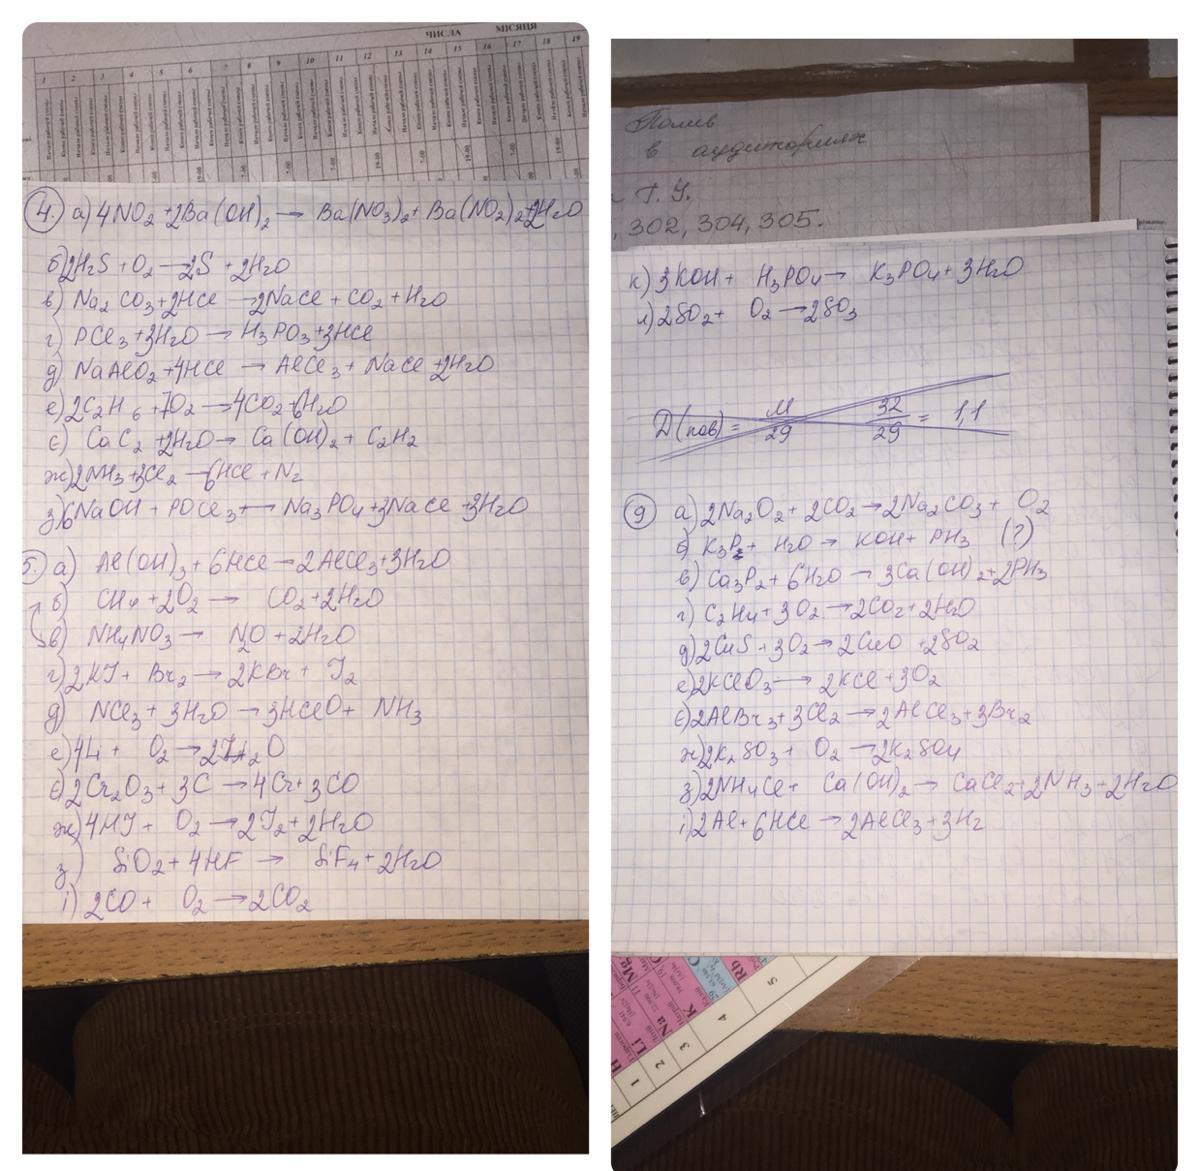 ЧИСЛА МІСЯЦЯ
1 2 3 4 5 6 7 8 9 10 11 12 13 14 15 16 17 18 19
4. а) 4NO2 + 2Ba(OH)2 → Ba(NO3)2 + Ba(NO2)2 + 2H2O
б) 2H2S + O2 → 2S + 2H2O
в) Na2CO3 + 2HCl → 2NaCl + CO2 + H2O
г) PCl3 + 3H2O → H3PO3 + 3HCl
д) NaAlO2 + 4HCl → AlCl3 + NaCl + 2H2O
е) 2C2H6 + 7O2 → 4CO2 + 6H2O
є) CaC2 + 2H2O → Ca(OH)2 + C2H2
ж) 2NH3 + 3Cl2 → 6HCl + N2
з) 6NaOH + POCl3 + → Na3PO4 + 3NaCl + 3H2O
5. а) Al(OH)3 + 6HCl → 2AlCl3 + 3H2O
б) CH4 + 2O2 → CO2 + 2H2O
в) NH4NO3 → N2O + 2H2O
г) 2KJ + Br2 → 2KBr + J2
д) NCl3 + 3H2O → 3HClO + NH3
е) 4Li + O2 → 2Li2O
є) 2Cr2O3 + 3C → 4Cr + 3CO
ж) 4HJ + O2 → 2J2 + 2H2O
з) SiO2 + 4HF → SiF4 + 2H2O
і) 2CO + O2 → 2CO2
Полив
в аудиторіях
Т. У.
, 302, 304, 305.
к) 3KOH + H3PO4 → K3PO4 + 3H2O
л) 2SO2 + O2 → 2SO3
Д(пов) = M/29 32/29 = 1,1
9 а) 2Na2O2 + 2CO2 → 2Na2CO3 + O2
б) K3P + H2O → KOH + PH3 (?)
в) Ca3P2 + 6H2O → 3Ca(OH)2 + 2PH3
г) C2H4 + 3O2 → 2CO2 + 2H2O
д) 2CuS + 3O2 → 2CuO + 2SO2
е) 2KClO3 → 2KCl + 3O2
є) 2AlBr3 + 3Cl2 → 2AlCl3 + 3Br2
ж) 2K2SO3 + O2 → 2K2SO4
з) 2NH4Cl + Ca(OH)2 → CaCl2 + 2NH3 + 2H2O
і) 2Al + 6HCl → 2AlCl3 + 3H2
H Li Na K Rb
Mg
1 2 3 4 5